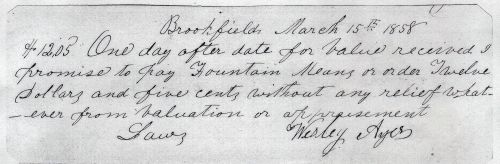 Brookfields March 15th 1858
$12,05 One day after date for value received I
promise to pay Fountain Means or order Twelve
Dollars and five cents without any relief what-
-ever from valuation or appraisement
Laws Wesley Ayers